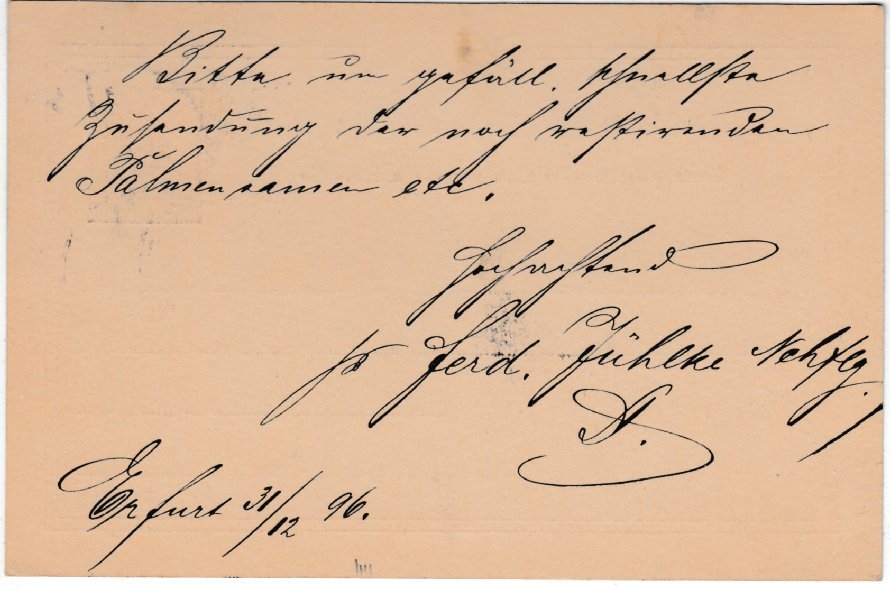 Bitte um gefäll. schnellste
Zusendung der noch restirenden
Palmensamen etc.
Hochachtend
pr Ferd. Jühlke Nchflg.
A.
Erfurt 31/12 96.